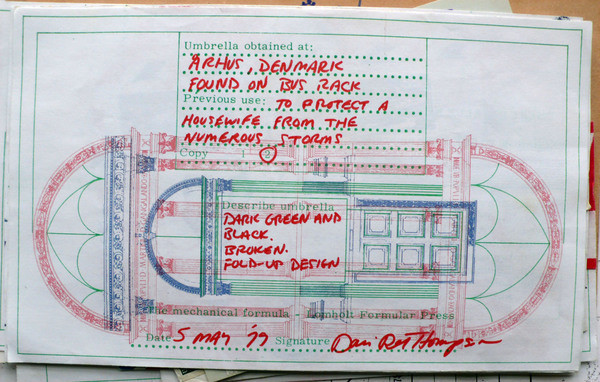 Umbrella obtained at:
ÅRHUS, DENMARK
FOUND ON BUS RACK
Previous use: TO PROTECT A
HOUSEWIFE FROM THE
NUMEROUS STORMS
Copy 1 2
Describe umbrella
DARK GREEN AND
BLACK.
BROKEN.
FOLD-UP DESIGN
The mechanical formula - Lomholt Formular Press
Date 5 MAY Signature